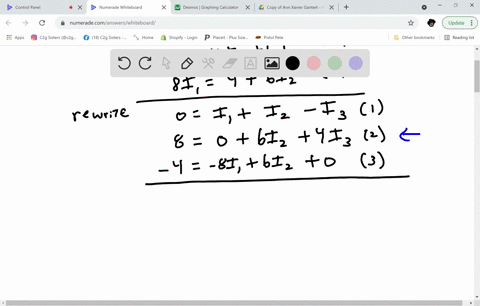 Control Panel
Numerade Whiteboard
Desmos | Graphing Calculator
Copy of Ann Xavier Gantert
numerade.com/answers/whiteboard/
Update
Apps
C2g Solers
(8) C2g Solers -...
Home
Shopify - Login
Other bookmarks
Reading list
8I₁ = 4 + 6I₂
rewrite 0 = I₁ + I₂ - I₃ (1)
8 = 0 + 6I₂ + 4I₃ (2) ←
-4 = -8I₁ + 6I₂ + 0 (3)